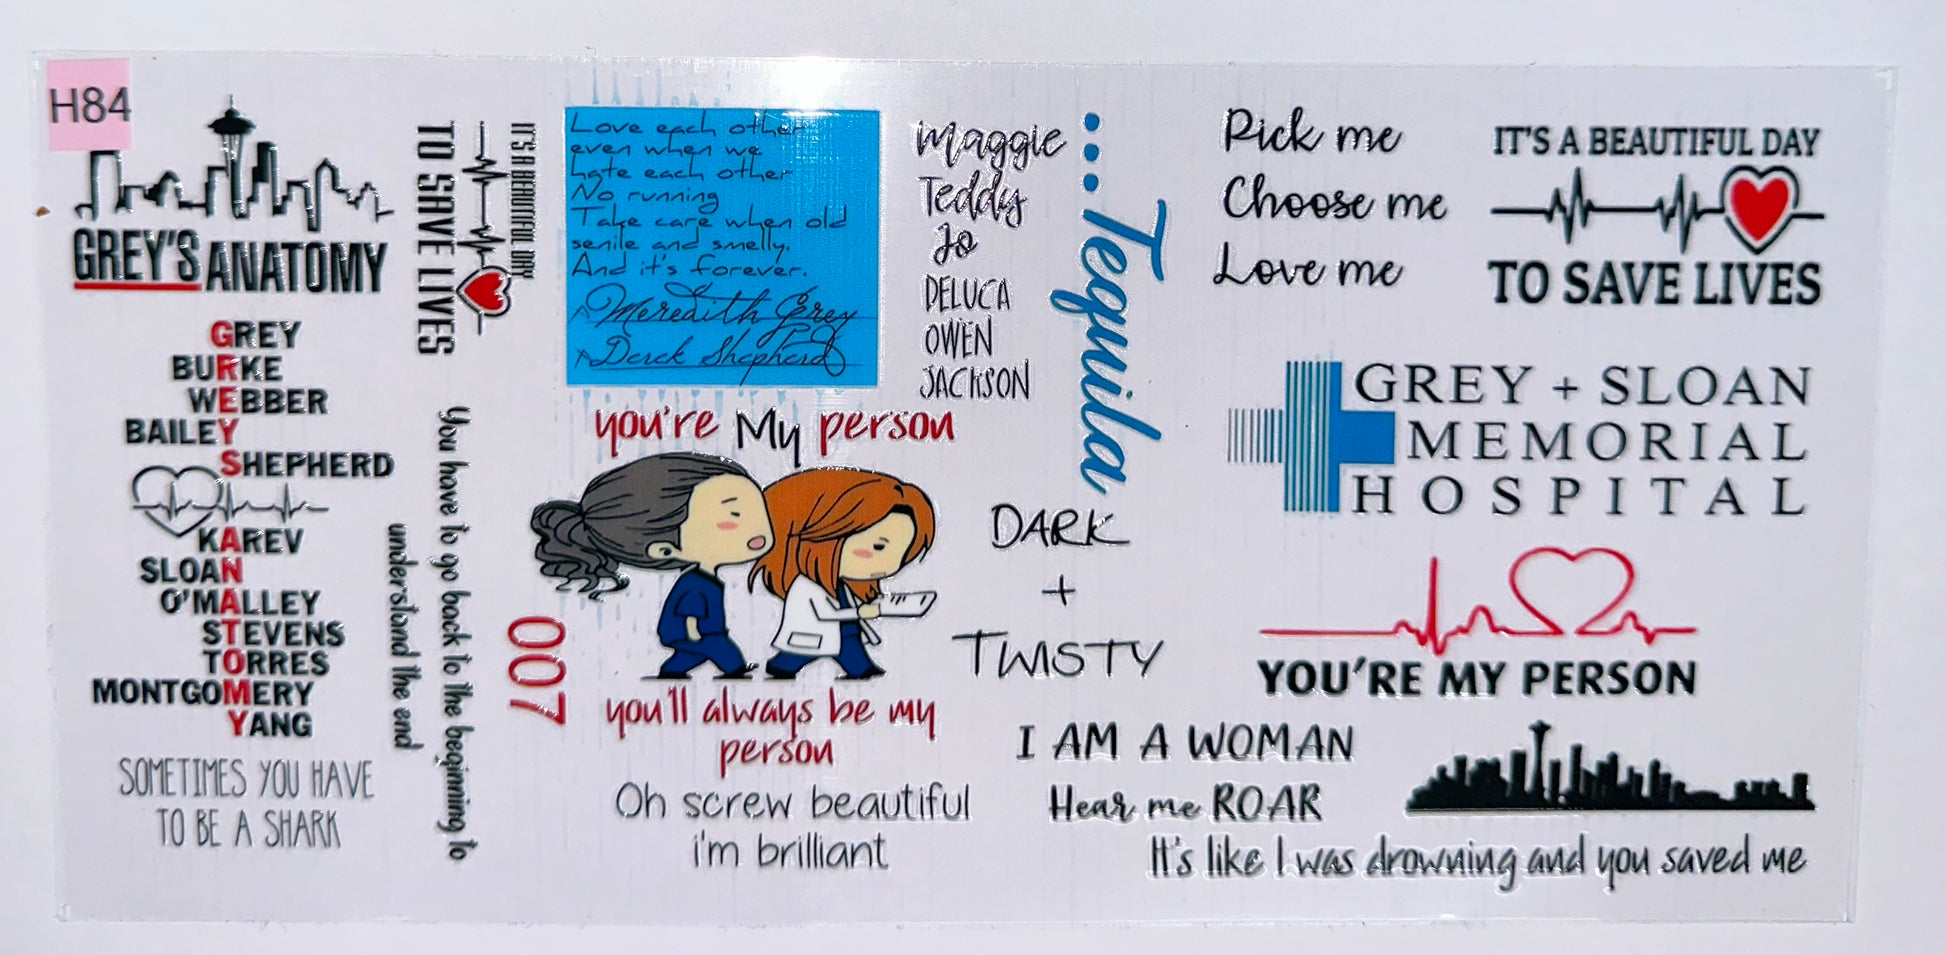 H84
GREY'S ANATOMY
GREY
BURKE
WEBBER
BAILEY
SHEPHERD
KAREV
SLOAN
O'MALLEY
STEVENS
TORRES
MONTGOMERY
YANG
SOMETIMES YOU HAVE
TO BE A SHARK
IT'S A BEAUTIFUL DAY
TO SAVE LIVES
You have to go back to the beginning to
understand the end
007
Love each other
even when we
hate each other
No running
Take care when old
senile and smelly.
And it's forever.
Meredith Grey
Derek Shepherd
you're My person
you'll always be my
person
Oh screw beautiful
i'm brilliant
Maggie
Teddy
Jo
DELUCA
OWEN
JACKSON
...Tequila
DARK
+
TWISTY
I AM A WOMAN
Hear me ROAR
It's like I was drowning and you saved me
Pick me
Choose me
Love me
IT'S A BEAUTIFUL DAY
TO SAVE LIVES
GREY + SLOAN
MEMORIAL
HOSPITAL
YOU'RE MY PERSON